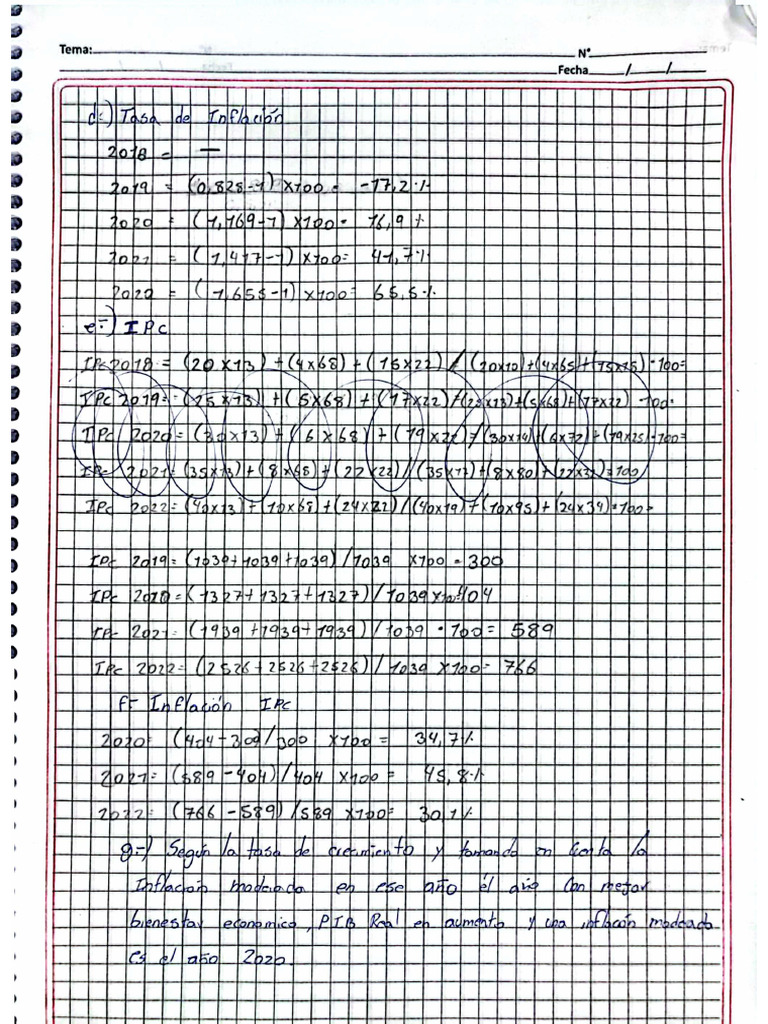 Tema:
N°
Fecha / /
d-) Tasa de Inflación
2018 = —
2019 = (0,828-1) x100 = -17,2%
2020 = (1,169-1) x100 = 16,9 %
2021 = (1,417-1) x100= 41,7%
2020 = (1,655-1) x100= 65,5%
e-) IPC
IPC 2018 = (20x13) + (4x68) + (15x22) / (20x10)+(4x65)+(15x15) *100=
IPC 2019= (25x13) + (5x68) + (17x22) /(25x13)+(5x68)+(17x22) 100=
IPC 2020= (30x13) + (6x68) + (19x22) /(30x14)+(6x72)+(19x25)*100=
IPC 2021= (35x13)+(8x68)+(22x22)/(35x17)+(8x80)+(22x32)*100
IPC 2022=(40x13)+(10x68)+(24x22)/(40x19)+(10x95)+(24x34)*100=
IPC 2019= (1039+1039+1039)/1039 x100 = 300
IPC 2020=(1327+1327+1327)/1039x100=404
IPC 2021= (1939+1939+1939)/1039 *100= 589
IPC 2022=(2526+2526+2526)/1039 x100= 766
f- Inflación IPC
2020= (404-300)/300 x100 = 34,7%
2021= (589-404)/404 x100 = 45,8%
2022= (766-589)/589 x100= 30,1%
g-) Según la tasa de crecimiento y tomando en cuenta la
Inflación moderada en ese año el año con mejor
bienestar economico, PIB Real en aumento y una inflación moderada
es el año 2020.